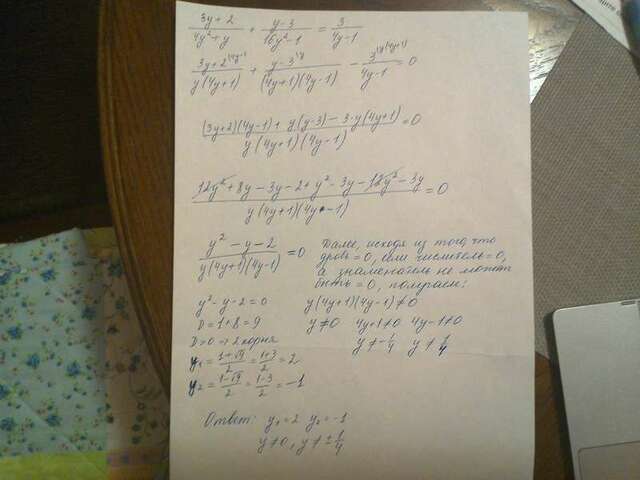 (3y+2)/(4y²+y) + (y-3)/(16y²-1) = 3/(4y-1)
(3y+2^\(4y-1))/(y(4y+1)) + (y-3^\y)/((4y+1)(4y-1)) - 3^\y(4y+1)/(4y-1) = 0
((3y+2)(4y-1) + y(y-3) - 3·y(4y+1))/(y(4y+1)(4y-1)) = 0
(12y²+8y-3y-2+y²-3y-12y²-3y)/(y(4y+1)(4y-1)) = 0
(y²-y-2)/(y(4y+1)(4y-1)) = 0
Далее, исходя из того, что
дробь=0, если числитель=0,
а знаменатель не может
быть =0, получаем:
y²-y-2=0 y(4y+1)(4y-1)≠0
D=1+8=9 y≠0 4y+1≠0 4y-1≠0
D>0 ⇒ 2 корня y≠-1/4 y≠1/4
y₁=(1+√9)/2=(1+3)/2=2
y₂=(1-√9)/2=(1-3)/2=-1
Ответ: y₁=2 y₂=-1
y≠0, y≠±1/4